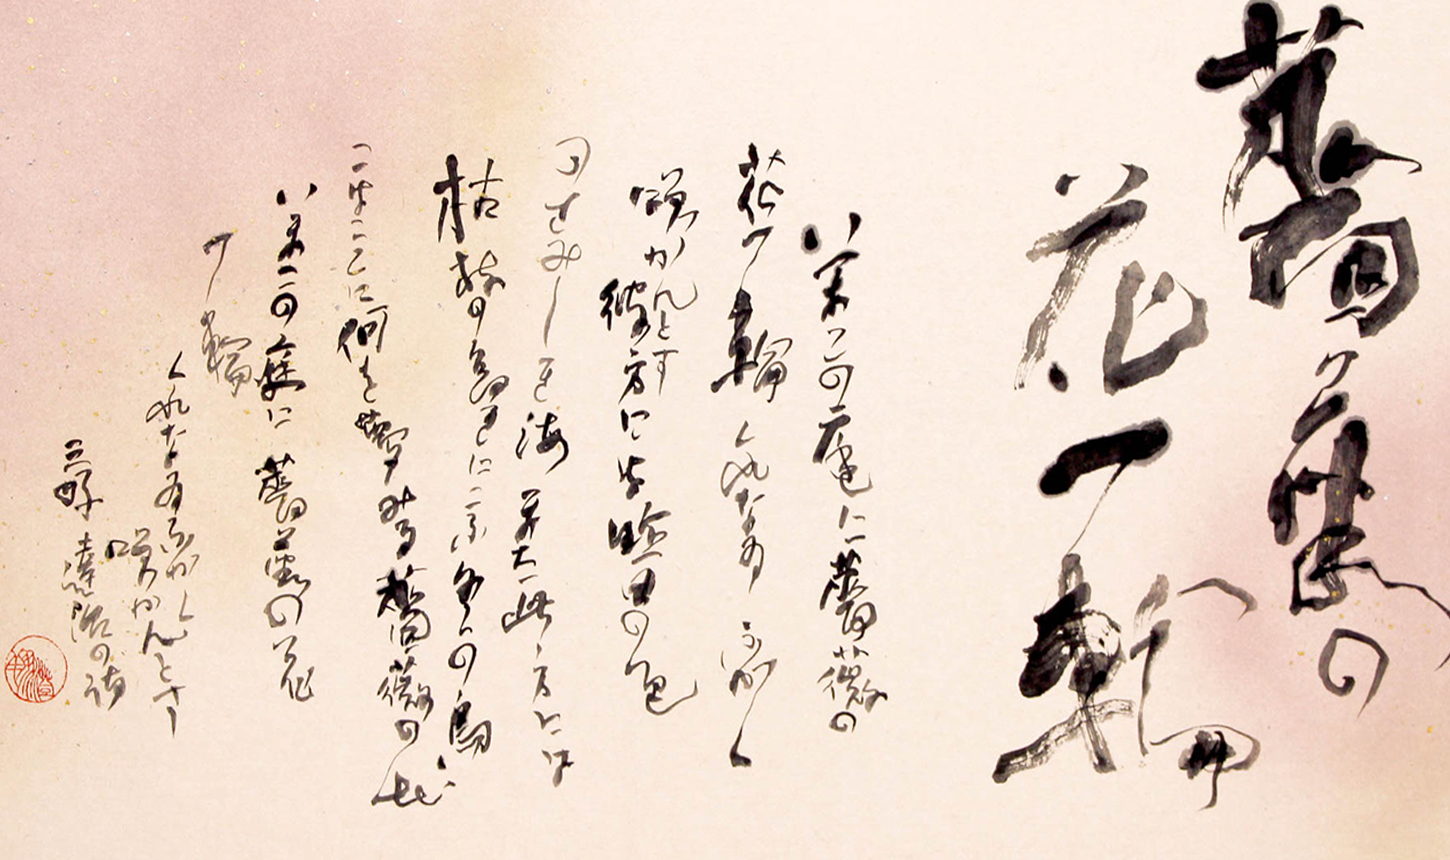 薔薇の
花一輪
いまこの庭に薔薇の
花一輪くれなゐふかく
咲かんとす
彼方には昨日の色
のさみしき海また此方には
枯枝の高きに冬の鳥
こはここに何を夢みる薔薇の花
いまこの庭に薔薇の花
一輪
くれなゐふかく
咲かんとす
三好達治の詩